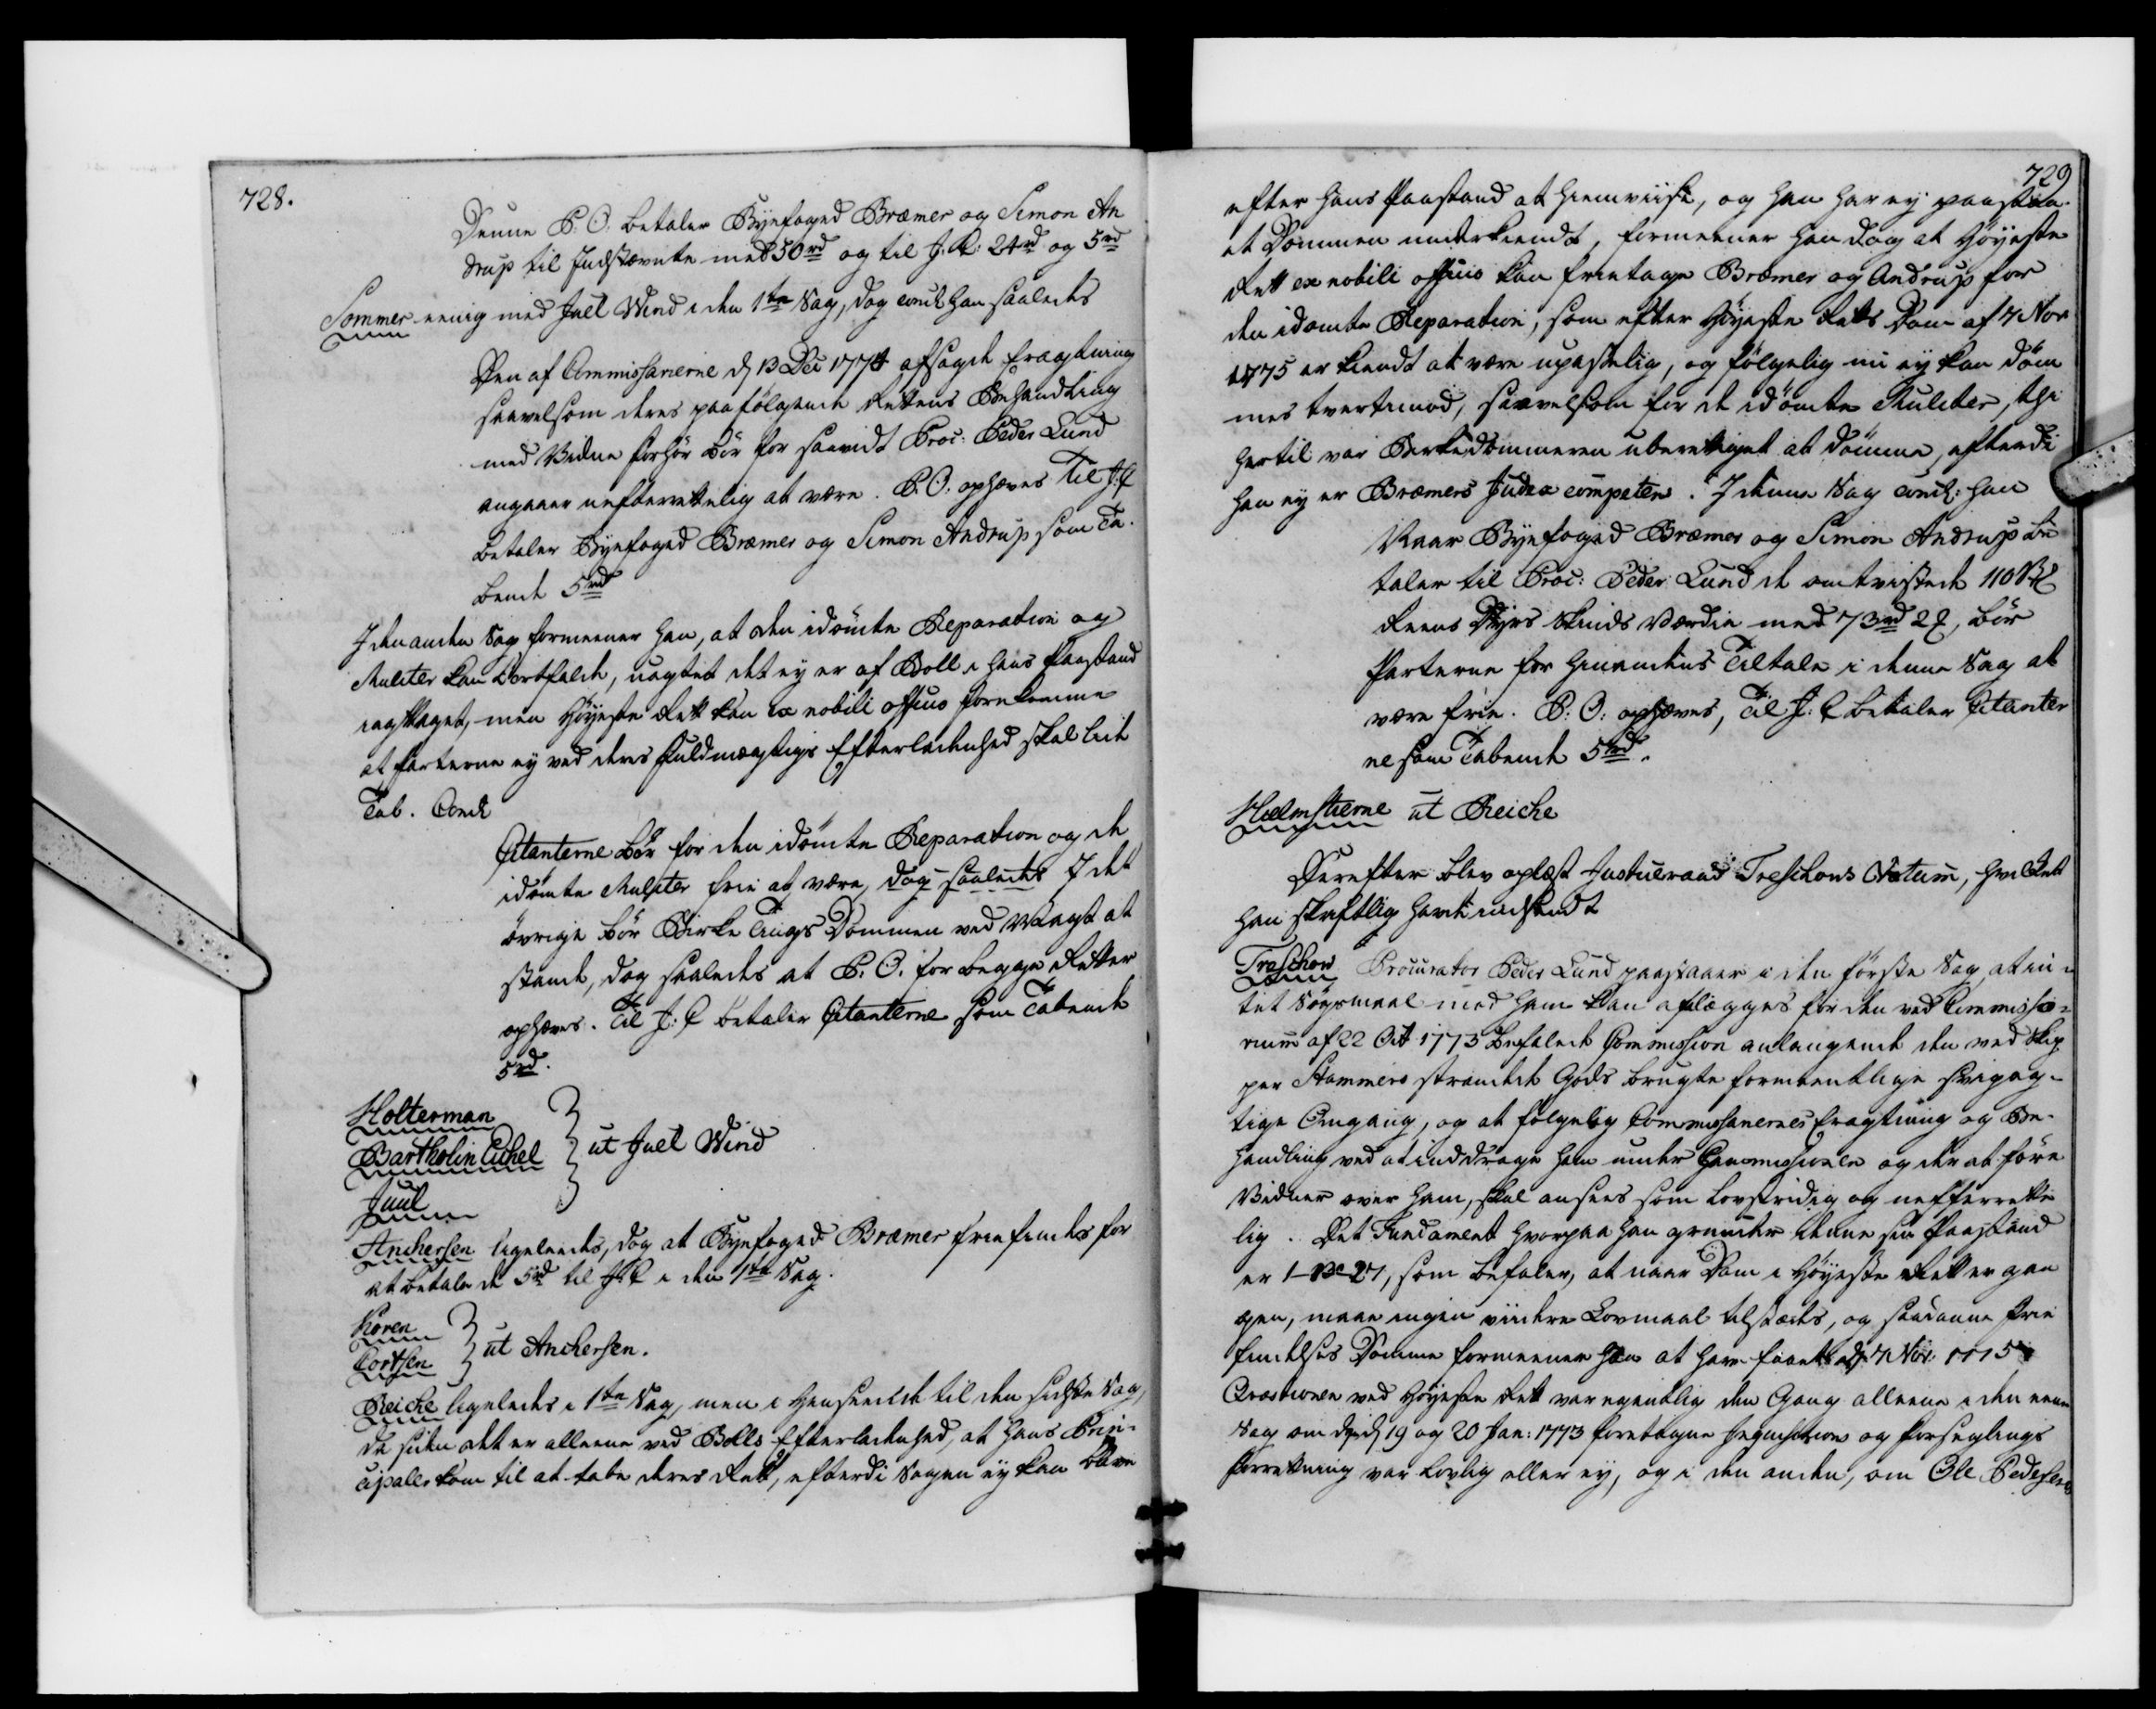 728.
Denne P. O. betaler Byefoged Bræmer og Simon An
drup til Indstævnte med 30 rd og til J. C. 24 rd og 5 rd
Sommer eenig med Juel Wind i den 1te Sag, dog concl han saaledes
Den af Commissarierne d 13 Dec 1774 afsagde Eragtning
saavelsom deres paafølgende Rettens Behandling
med Vidne Forhør bør for saavidt Proc: Peder Lund
angaaer uefterrettelig at være. P. O. ophæves Til J. C
betaler Byefoged Bræmer og Simon Andrup som Ta-
bende 5 rd
I den anden Sag formeener han, at den idömte Reparation og
Mulcter kan bortfalde, uagtet det ey er af Boll i hans Paastand
iagttaget, men Høyeste Rett kan ex nobili officio forekomme
at Parterne ey ved deres Fuldmægtigs Efterladenhed skal lide
Tab. Concl
Citanterne bør for den idömte Reparation og de
idömte Mulcter frie at være, dog saaledes I det
övrige bör Birke Tings Dommen ved Magt at
stande, dog saaledes at P. O. for begge Retter
ophæves. Til J: C betaler Citanterne som Tabende
5 rd.
Holterman
Bartholin Eichel
Juul
ut Juel Wind
Anchersen ligeleedes, dog at Byefoged Bræmer friefindes for
at betale de 5 rd til J. C i den 1te Sag.
Koren
Cortsen
ut Anchersen.
Reiche ligeledes i 1te Sag, men i Henseende til den sidste Sag,
da siden det er alleene ved Bolls Efterladenhed, at hans Prin-
cipaller kom til at tabe deres Rett, efterdi Sagen ey kan blive
729
efter hans Paastand at hiemviise, og han har ey paastaa-
et Dommen underkiendt, formeener han dog at Høyeste
Rett ex nobili officio kan frietage Bræmer og Andrup for
den idömte Reparation, som efter Høyeste Retts Dom af 7 Nov
1775 er kiendt at være upasselig, og følgelig nu ey kan döm
mes tvertimod, saavelsom for de idömte Mulcter, thi
hertil var Birkedommeren uberettiget at dömme, efterdi
han ey er Bræmers Judex competens. I denne Sag concl: han
Naar Byefoged Bræmer og Simon Andrup be
taler til Proc: Peder Lund de omtvistede 110
Reens Dyrs Skinds Værdie med 73 rd 2 , bør
Parterne for hinandens Tiltale i denne Sag at
være frie. P: O: ophæves, Til J: C betaler Citanter
ne som Tabende 5 rd.
Hielmstierne ut Reiche
Derefter blev oplæst Justitsraad Treschows Votum, hvilket
han skriftlig havde indsendt
Treschow Procurator Peder Lund paastaaer i den første Sag, at in-
tet Søgsmaal mod ham kan aflægges for den ved Commisso-
rium af 22 Oct 1773 befalede Commission anlangende den ved Skip
per Hammers strandede Gods brugte formeentlige svigag-
tige Omgang, og at følgelig Commissariernes Eragtning og Be-
handling ved at inddrage ham under Commissionen og der at føre
Vidner over ham, skal ansees som lovstridig og uefterrette
lig. Det Fundament hvorpaa han grunder denne sin Paastand
er 1-13-27, som befaler, at naar Dom i Høyeste Rett er gan
gen, maae ingen viidere Lovmaal tilstædes, og saadanne frie
findelses Domme formeener han at have faaet d 7 Nov: 1775
Qvæstionen ved Høyeste Rett var egentlig den Gang alleene i den eene
Sag om de d 19 og 20 Jan: 1773 foretagne Inqvisitions og Forseglings
Forretning var lovlig eller ey, og i den anden, om Ole Pedersens